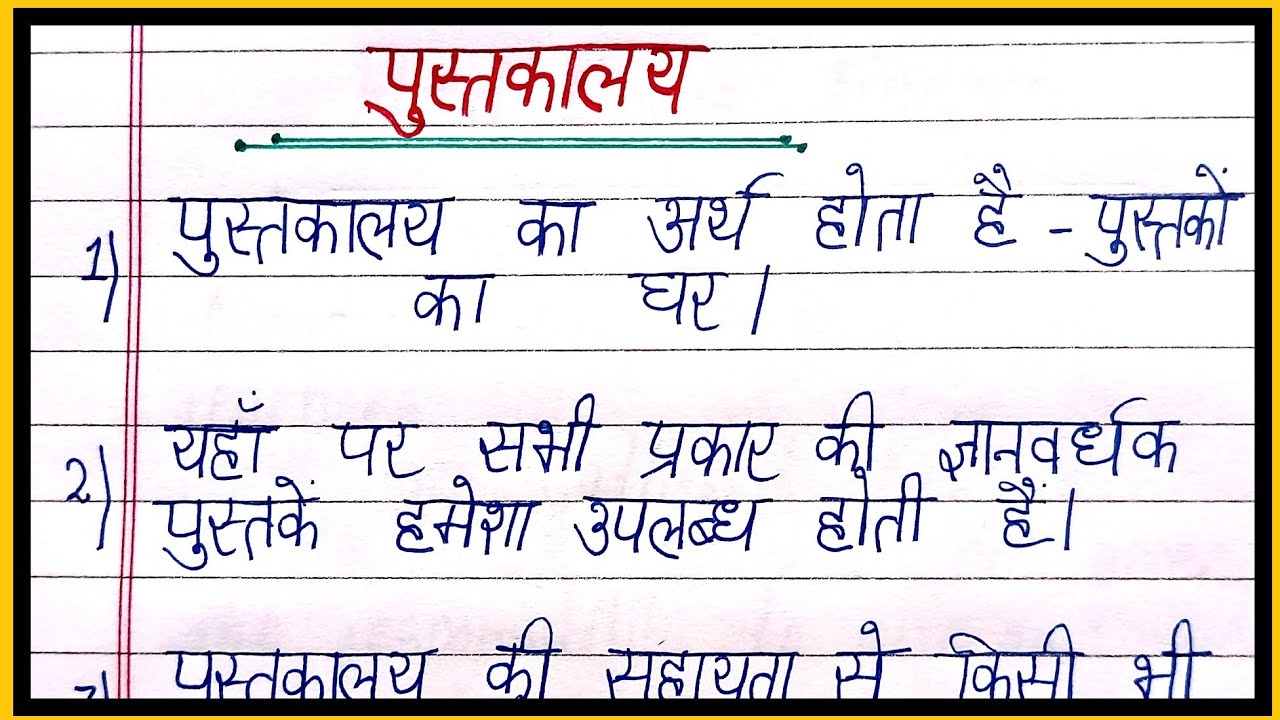 पुस्तकालय
1) पुस्तकालय का अर्थ होता है - पुस्तकों
का घर।
2) यहाँ पर सभी प्रकार की ज्ञानवर्धक
पुस्तकें हमेशा उपलब्ध होती हैं।
पुस्तकालय की सहायता से किसी भी